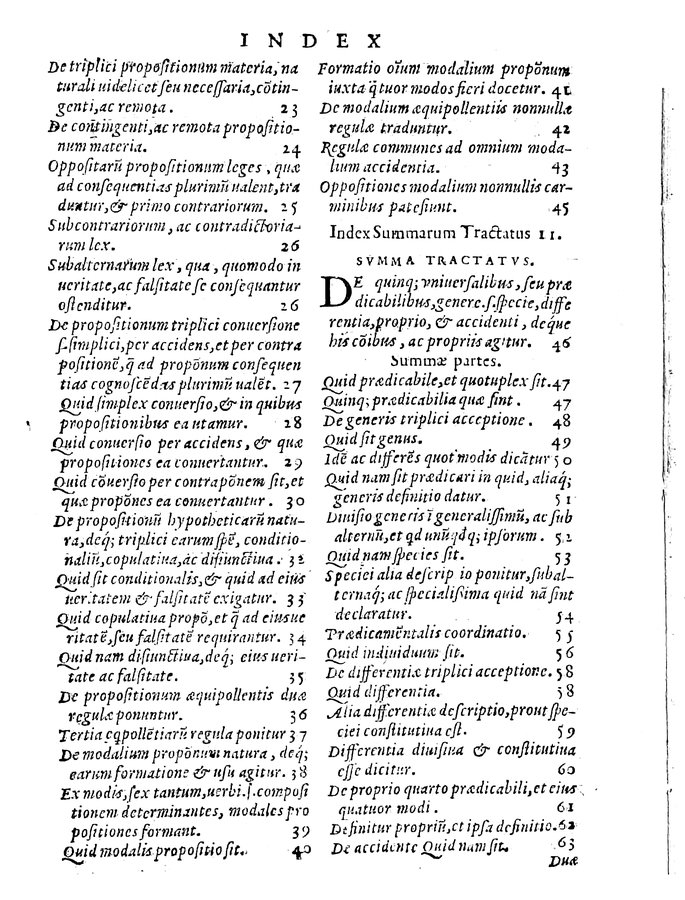 INDEX
De triplici propositionum materia, na
turali uidelicet seu necessaria, cōtin-
genti, ac remota. 23
De contingenti, ac remota propositio-
num materia. 24
Oppositarū propositionum leges, quæ
ad consequentias plurimū ualent, tra
duntur, & primo contrariorum. 25
Subcontrariorum, ac contradictoria-
rum lex. 26
Subalternarum lex, qua, quomodo in
ueritate, ac falsitate se consequantur
ostenditur. 26
De propositionum triplici conuersione
s. simplici, per accidens, et per contra
positionē, q̄ ad propōnum consequen
tias cognoscēdas plurimū ualēt. 27
Quid simplex conuersio, & in quibus
propositionibus ea utamur. 28
Quid conuersio per accidens, & quæ
propositiones ea conuertantur. 29
Quid cōuersio per contrapōnem sit, et
quæ propōnes ea conuertantur. 30
De propositionū hypotheticarū natu-
ra, deq; triplici earum spē, conditio-
naliū, copulatiua, ac disiunctiua. 32
Quid sit conditionalis, & quid ad eius
ueritatem & falsitatē exigatur. 33
Quid copulatiua propō, et q̄ ad eius ue
ritatē, seu falsitatē requirantur. 34
Quid nam disiunctiua, deq; eius ueri-
tate ac falsitate. 35
De propositionum æquipollentis duæ
regulæ ponuntur. 36
Tertia eqpollētiarū regula ponitur 37
De modalium propōnum natura, deq;
earum formatione & usu agitur. 38
Ex modis, sex tantum, uerbi. s. composi
tionem determinantes, modales pro
positiones formant. 39
Quid modalis propositio sit. 40
Formatio oīum modalium propōnum
iuxta q̄tuor modos fieri docetur. 41
De modalium æquipollentiis nonnullæ
regulæ traduntur. 42
Regulæ communes ad omnium moda-
lium accidentia. 43
Oppositiones modalium nonnullis car-
minibus patefiunt. 45
Index Summarum Tractatus II.
SVMMA TRACTATVS.
DE quinq; vniuersalibus, seu præ
dicabilibus, genere. s. specie, diffe
rentia, proprio, & accidenti, deque
his cōibus, ac propriis agitur. 46
Summæ partes.
Quid prædicabile, et quotuplex sit. 47
Quinq; prædicabilia quæ sint. 47
De generis triplici acceptione. 48
Quid sit genus. 49
Idē ac differēs quot modis dicātur 50
Quid nam sit prædicari in quid, aliaq;
generis definitio datur. 51
Diuisio generis ī generalissimū, ac sub
alternū, et qd unūqdq; ipsorum. 52
Quid nam species sit. 53
Speciei alia descrip io ponitur, subal-
ternaq; ac specialissima quid nā sint
declaratur. 54
Prædicamētalis coordinatio. 55
Quid indiuiduum sit. 56
De differentiæ triplici acceptione. 58
Quid differentia. 58
Alia differentiæ descriptio, prout spe-
ciei constitutiua est. 59
Differentia diuisiua & constitutiua
esse dicitur. 60
De proprio quarto prædicabili, et eius
quatuor modi. 61
Definitur propriū, et ipsa definitio. 62
De accidente Quid nam sit. 63
Duæ